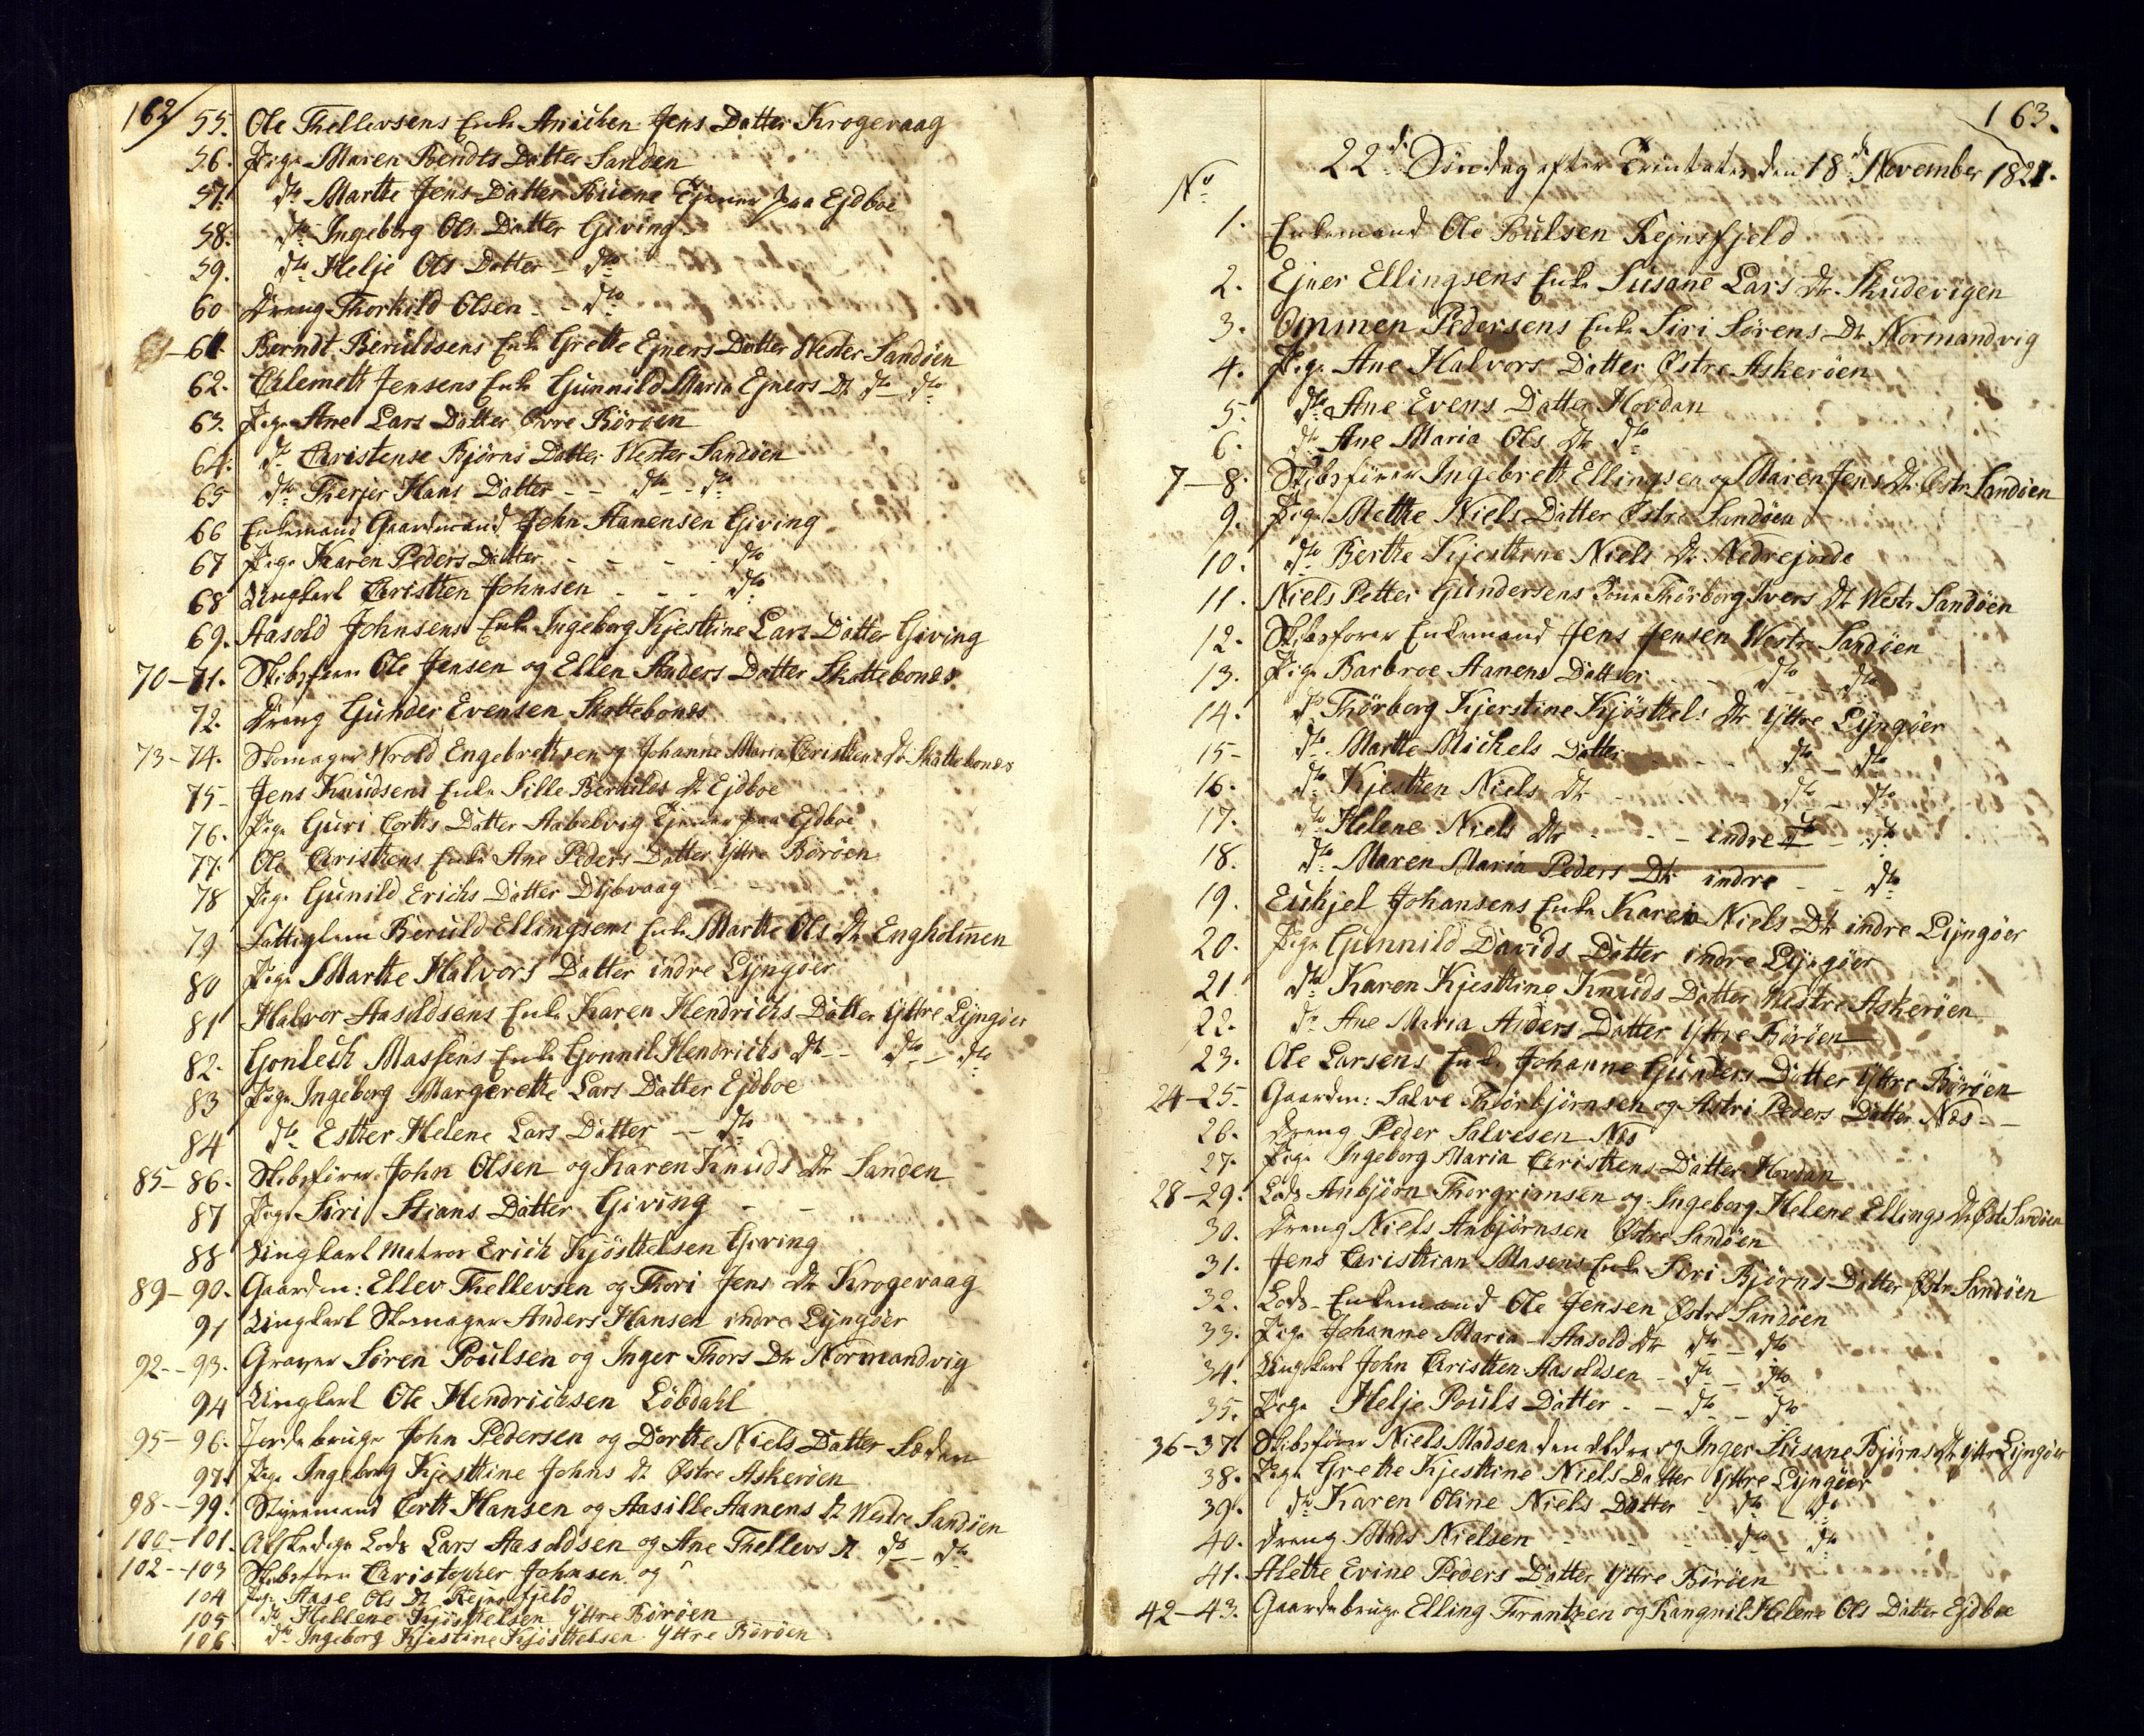 162
55. Ole Thellevsens Enke Anichen Jens Datter Krogevaag
56. Pige Maren Bendts Datter Sandøen
57. dto Marthe Jens Datter Buene Tjener paa Ejdboe
58. dto Ingeborg Ols Datter Giving
59. dto Helje Ols Datter - dto
60 Dreng Thorkild Olsen - - dto
61. Berndt Beruldsens Enke Grethe Ejners Datter Wester Sandøen
62. Clemeth Jensens Enke Gunnild Maria Ejners Dt dto - dto
63. Pige Ane Lars Datter Øvre Börøen
64. dto Christense Bjørns Datter Wester Sandøen
65 dto Therjer Hans Datter - - dto - dto
66 Enkemand Gaardmand John Aanensen Giving
67 Pige Karen Peders Datter - - - - dto
68 Ungkarl Christen Johnsen - - - dto
69. Aasold Johnsens Enke Ingeborg Kjestine Lars Datter Giving
70-71. Skibsfører Ole Jensen og Ellen Anders Datter Skottebones
72. Dreng Gunder Evensen Skottebones
73-74. Skomager Wrold Engebrethsen og Johanne Maria Christens Dt Skottebones
75- Jens Knudsens Enke Sille Berulds Dt Ejdboe
76. Pige Guri Corths Datter Aabelvig Tjener paa Ejdboe
77. Ole Christens Enke Ane Peders Datter Yttre Börøen
78 Pige Gunild Erichs Datter Dybvaag
79 Fattiglem Beruld Ellingsens Enke Marthe Ols Dt Engholmen
80 Pige Marthe Halvors Datter indre Lyngøer
81 Halvor Aasoldsens Enke Karen Hendrichs Datter Yttre Lyngøer
82. Gonlech Massens Enke Gonnil Hendrichs Dt - dto - dto
83 Pige Ingeborg Margerethe Lars Datter Ejdboe
84 dto Esther Helene Lars Datter - dto
85-86. Skibsfører John Olsen og Karen Knuds Dtr Sanden
87 Pige Siri Stians Datter Giving
88 Ungkarl Matros Erich Kjösthelsen Giving
89-90. Gaardm: Ellev Thellevsen og Thori Jens Dtr Krogevaag
91 Ungkarl Skomager Anders Hansen indre Lyngøer
92--93. Graver Søren Poulsen og Inger Thors Dtr Normandvig
94 Ungkarl Ole Hendrichsen Löbdahl
95-96. Jordebruger John Pedersen og Dorthe Niels Datter
97. Pige Ingeborg Kjestine Johns Dt Østre Askerøen
98--99. Styremand Corth Hansen og Aasille Aanens Dt Westre Sandøen
100-101. Afskediget Lods Lars Aasoldsen og Ane Thellevs Dt dto - dto
102--103 Skibsfører Christopher Johnsen og
104 Pige Aase Ols Dt Rejersfjeld
105 dto Hellene Kjösthelsen Yttre Börøen
106. dto Ingeborg Kjestine Kjösthelsen Yttre Börøen
163.
22de Søndag efter Trinitatis den 18de November 1821.
No
1. Enkemand Ole Poulsen Rejersfjeld
2. Ejner Ellingsens Enke Susane Lars Dtr Skudevigen
3. Ommen Pedersens Enke Siri Sørens Dtr Normandvig
4. Pige Ane Halvors Datter Østre Askerøen
5. dto Ane Evens Datter Hovdan
6. dto Ane Maria Ols Dtr dto
7-8. Skibsfører Ingebreth Ellingsen og Maren Jens Dtr Østre Sandøen
9. Pige Methe Niels Datter Østre Sandøen
10. dto Berthe Kjesthine Niels Dtr Nedrejorde
11. Niels Petter Gundersens Kone Thörborg Ivers Dtr Westre Sandøen
12. Skibsfører Enkemand Jens Jensen Westre Sandøen
13. Pige Barbroe Aanens Datter - - dto - dto
14. dto Thörborg Kjerstine Kjösthels Dtr Yttre Lyngøer
15- dto Marthe Michels Datter - - - dto - dto
16. dto Kjesthen Niels Dtr - dto - dto
17. dto Helene Niels Dtr - - - indre - dto
18. dto Maren Maria Peders Dtr indre - - dto
19. Eukjel Johansens Enke Karen Niels Dtr indre Lyngøer
20. Pige Gunnild Davids Datter indre Lyngøer
21 dto Karen Kjesthine Knuds Datter Westre Askerøen
22. dto Ane Maria Anders Datter Yttre Börøen
23. Ole Larsens Enke Johanne Gunders Datter Yttre Börøen
24-25. Gaardm: Salve Thörbjörnsen og Astri Peders Datter Næs -
26. Dreng Peder Salvesen Næs
27. Pige Ingeborg Maria Christhens Datter Hovdan
28-29. Lods Anbjörn Thorgrimsen og Ingeborg Helene Ellings Dtr Østre Sandøen
30. Dreng Niels Anbjörnsen Østre Sandøen
31. Jens Christhian Masens Enke Siri Bjørns Datter Østre Sandøen
32. Lods - Enkemand Ole Jensen Østre Sandøen
33. Pige Johanne Maria Aasold Dtr dto - dto
34. Ungkarl John Christhen Aasoldsen - dto - dto
35. Pige Helje Pouls Datter - - dto - dto
36-37. Skibsfører Niels Madsen den ældre og Inger Susane Bjørns Dt Yttre Lyngøer
38. Pige Grethe Kjesthine Niels Datter Yttre Lyngøer
39. dto Karen Oline Niels Datter - dto - dto
40. Dreng Mads Nielsen - - - dto - dto
41. Alethe Evine Peders Datter Yttre Börøen
42-43. Gaardebruger Elling Frantzen og Rangnil Helene Ols Datter Ejdboe